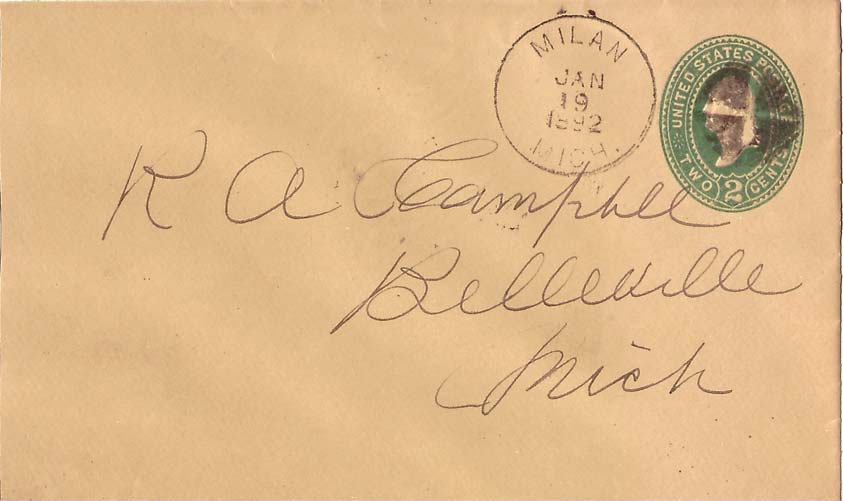 MILAN
JAN
19
1892
MICH.
UNITED STATES POSTAGE
TWO 2 CENTS
R A Campbell
Belleville
Mich